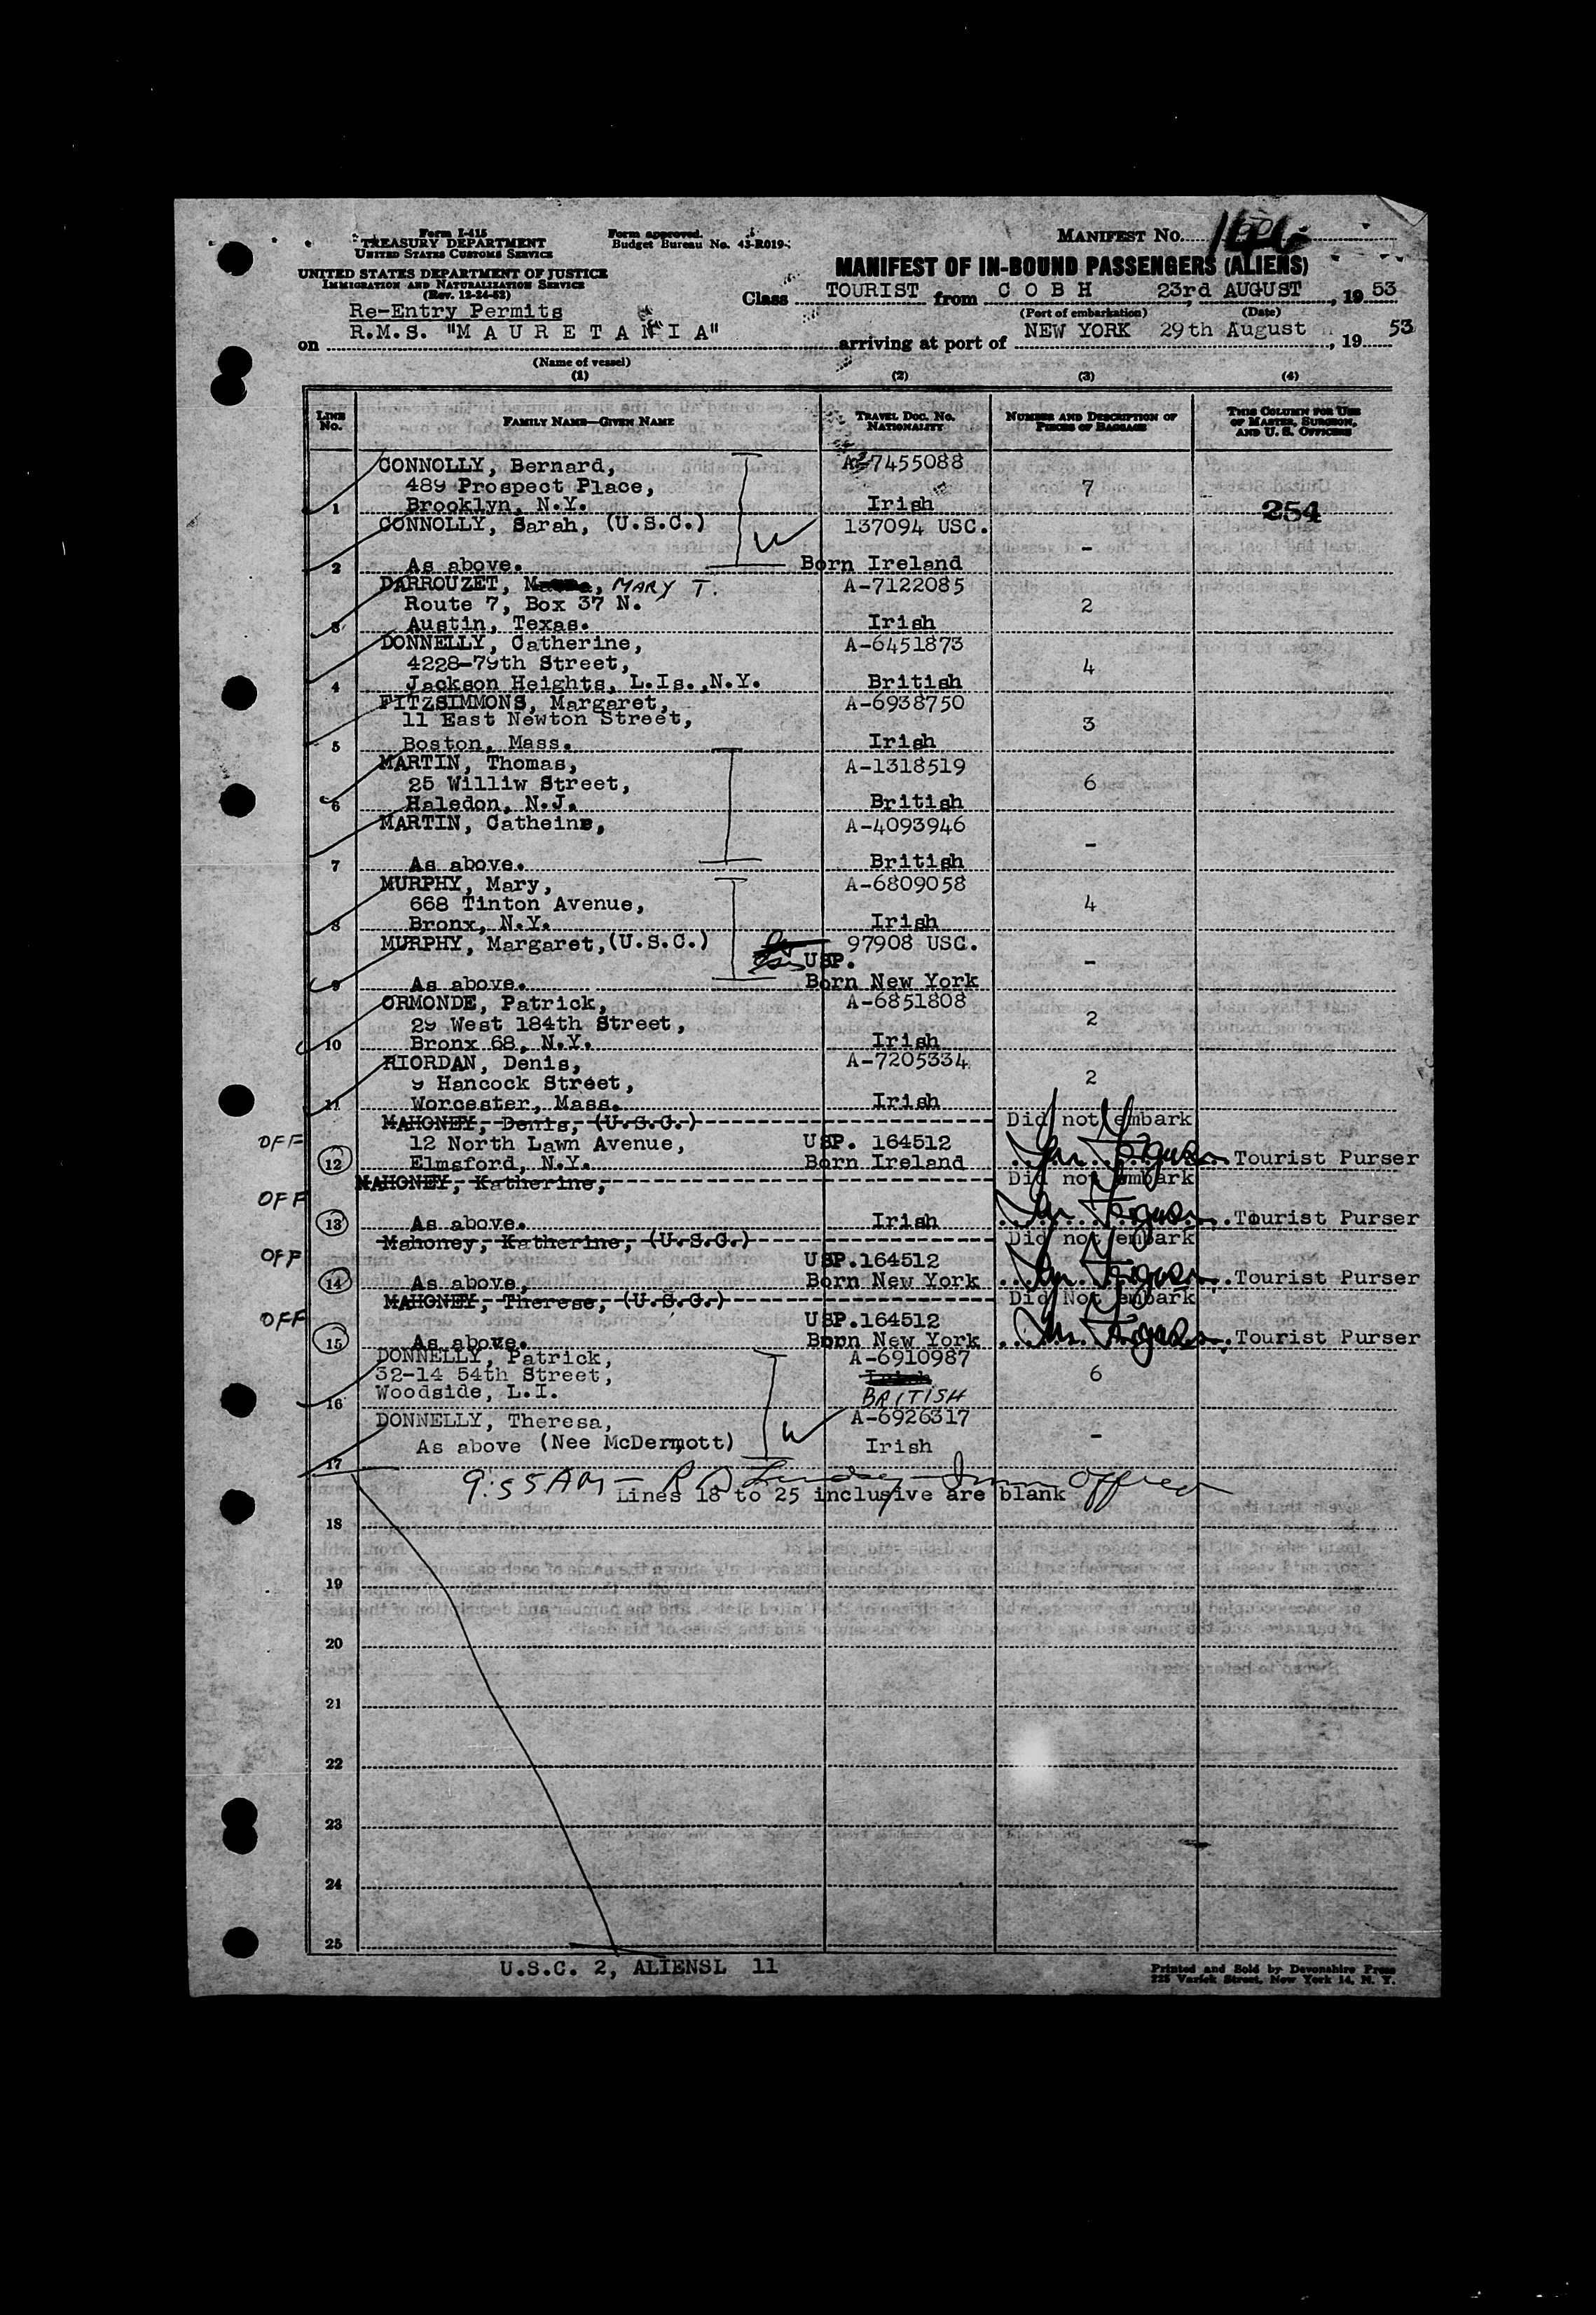 Form I-415
TREASURY DEPARTMENT
UNITED STATES CUSTOMS SERVICE
Form approved.
Budget Bureau No. 43-R019-
MANIFEST No.
UNITED STATES DEPARTMENT OF JUSTICE
IMMIGRATION AND NATURALIZATION SERVICE
(Rev. 12-24-52)
MANIFEST OF IN-BOUND PASSENGERS (ALIENS)
Re-Entry Permits
Class TOURIST from C O B H 23rd AUGUST, 19 53
(Port of embarkation) (Date)
on R.M.S. "M A U R E T A N I A" arriving at port of NEW YORK 29th August, 19 53
(Name of vessel)
(1) (2) (3) (4)
LINE No. FAMILY NAME—GIVEN NAME TRAVEL DOC. No. NATIONALITY NUMBER AND DESCRIPTION OF PIECES OF BAGGAGE THIS COLUMN FOR USE OF MASTER, SURGEON, AND U. S. OFFICERS
CONNOLLY, Bernard, A-7455088
489 Prospect Place, 7
1 Brooklyn, N.Y. Irish 254
CONNOLLY, Sarah, (U.S.C.) 137094 USC.
W -
2 As above. Born Ireland
DARROUZET, MARY T. A-7122085
Route 7, Box 37 N. 2
3 Austin, Texas. Irish
DONNELLY, Catherine, A-6451873
4228-79th Street, 4
4 Jackson Heights, L.Is.,N.Y. British
FITZSIMMONS, Margaret, A-6938750
11 East Newton Street, 3
5 Boston, Mass. Irish
MARTIN, Thomas, A-1318519
25 Williw Street, 6
6 Haledon, N.J. British
MARTIN, Catheine, A-4093946
-
7 As above. British
MURPHY, Mary, A-6809058
668 Tinton Avenue, 4
8 Bronx, N.Y. Irish
MURPHY, Margaret,(U.S.C.) 97908 USC.
USP. -
9 As above. Born New York
ORMONDE, Patrick, A-6851808
29 West 184th Street, 2
10 Bronx 68, N.Y. Irish
RIORDAN, Denis, A-7205334
9 Hancock Street, 2
11 Worcester, Mass. Irish
MAHONEY, Denis, (U.S.C.) Did not embark
OFF 12 North Lawn Avenue, USP. 164512
12 Elmsford, N.Y. Born Ireland Tourist Purser
MAHONEY, Katherine, Did not embark
OFF
13 As above. Irish Tourist Purser
Mahoney, Katherine, (U.S.C.) Did not embark
OFF USP.164512
14 As above, Born New York Tourist Purser
MAHONEY, Therese, (U.S.C.) Did Not embark
OFF USP.164512
15 As above. Born New York Tourist Purser
DONNELLY, Patrick, A-6910987
32-14 54th Street, Irish 6
16 Woodside, L.I. BRITISH
DONNELLY, Theresa, A-6926317
As above (Nee McDermott) W Irish -
17
9:55AM - R D Immn Officer
Lines 18 to 25 inclusive are blank
18
19
20
21
22
23
24
25
U.S.C. 2, ALIENSL 11
Printed and Sold by Devonshire Press
225 Varick Street, New York 14, N. Y.